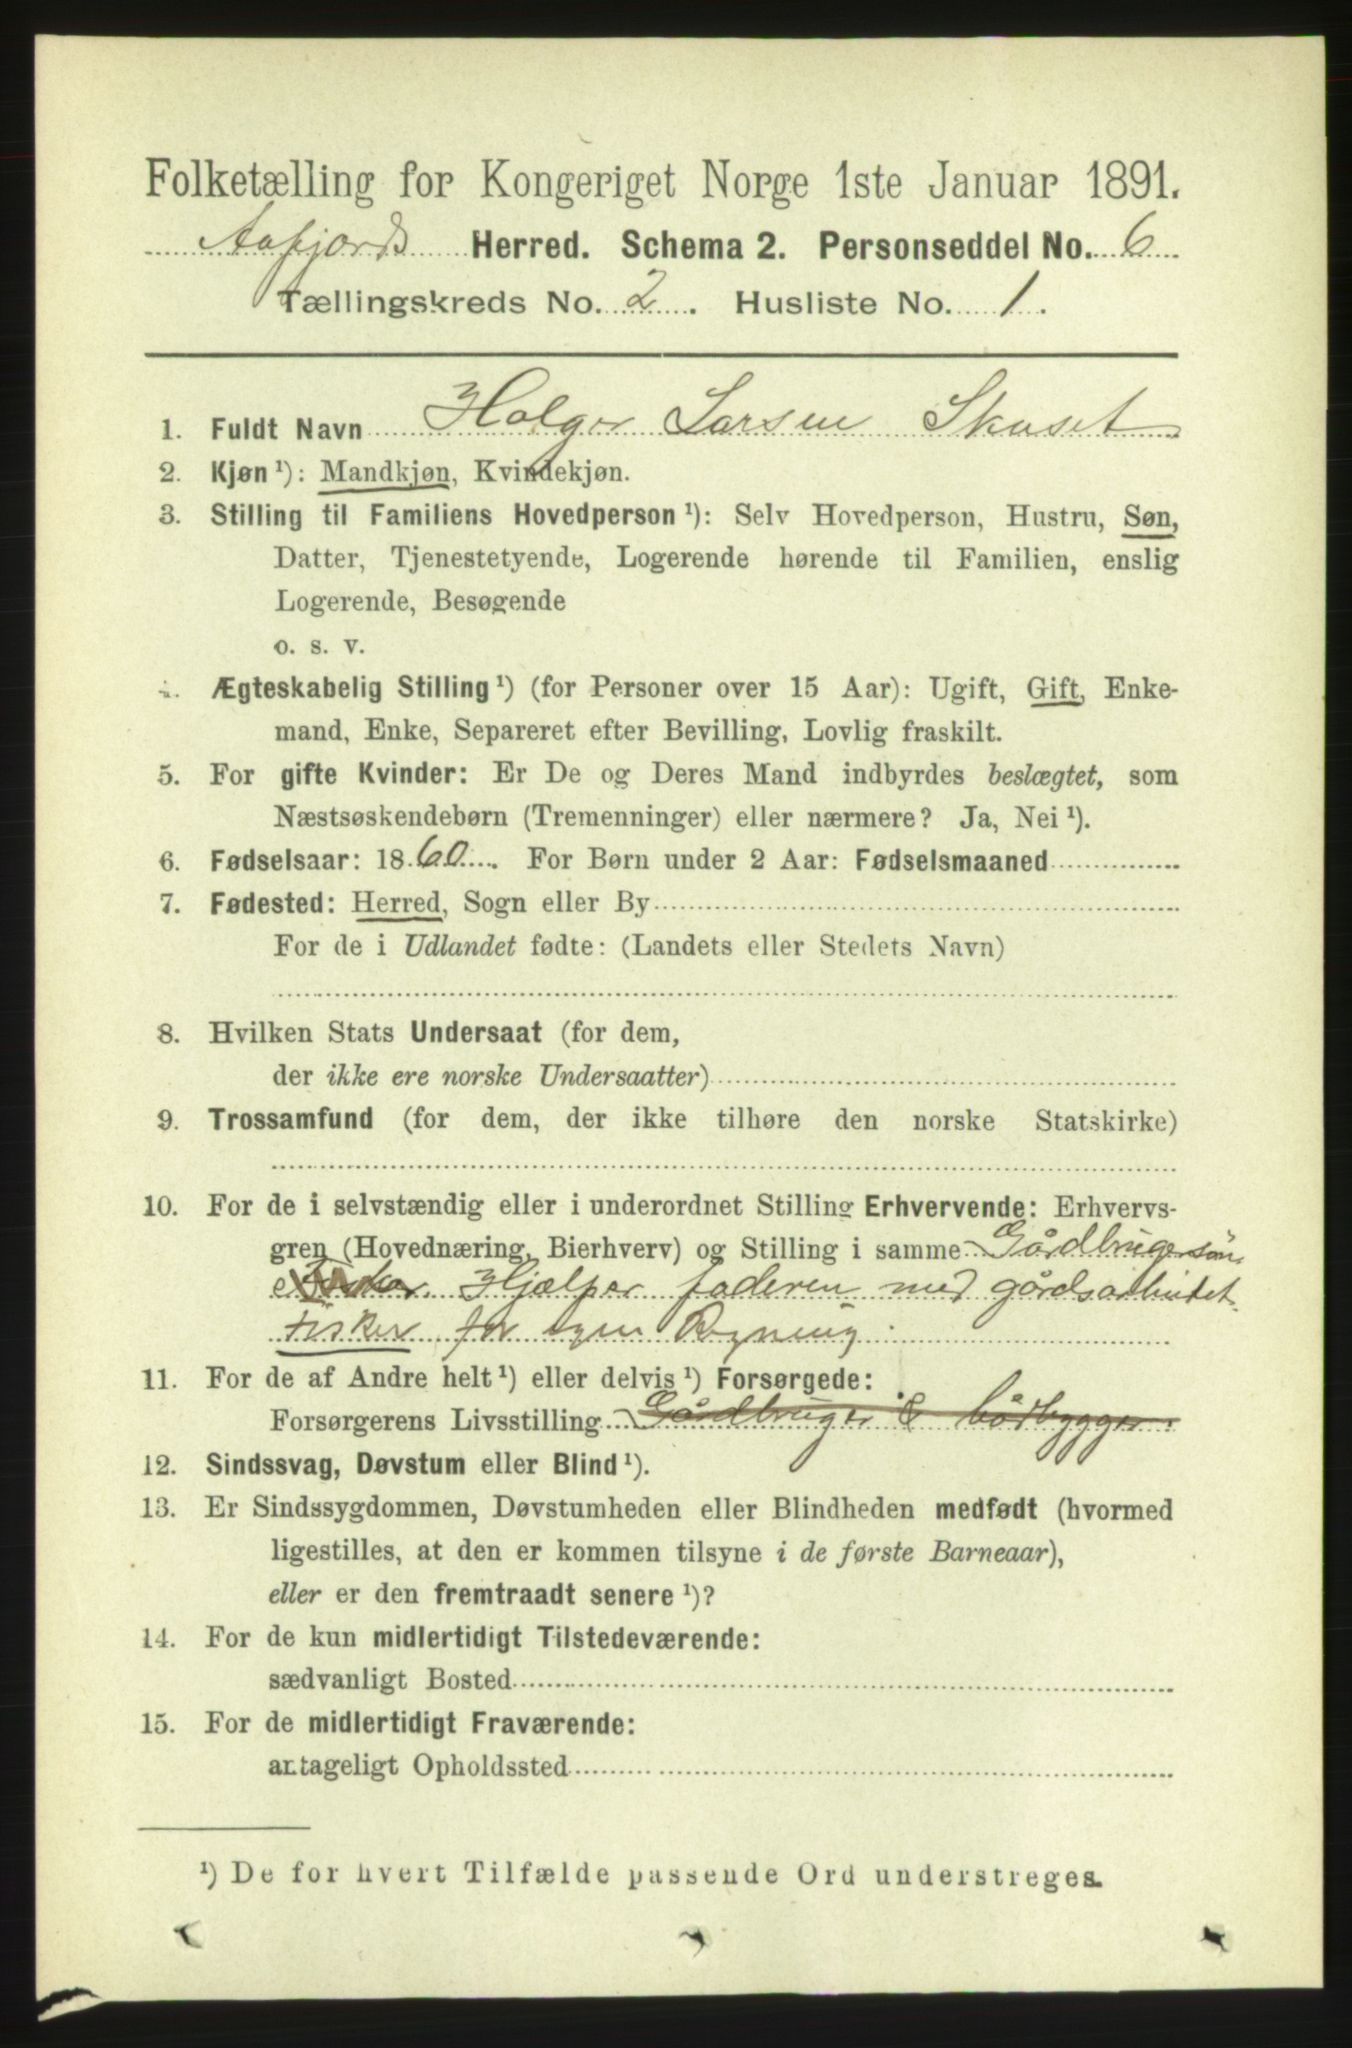 Folketælling for Kongeriget Norge 1ste Januar 1891.
Aafjords Herred. Schema 2. Personseddel No. 6
Tællingskreds No. 2. Husliste No. 1.
1. Fuldt Navn Holger Larsen Skuset
2. Kjøn ¹): Mandkjøn, Kvindekjøn.
3. Stilling til Familiens Hovedperson ¹): Selv Hovedperson, Hustru, Søn,
Datter, Tjenestetyende, Logerende hørende til Familien, enslig
Logerende, Besøgende
o. s. v.
4. Ægteskabelig Stilling ¹) (for Personer over 15 Aar): Ugift, Gift, Enke-
mand, Enke, Separeret efter Bevilling, Lovlig fraskilt.
5. For gifte Kvinder: Er De og Deres Mand indbyrdes beslægtet, som
Næstsøskendebørn (Tremenninger) eller nærmere? Ja, Nei ¹).
6. Fødselsaar: 1860. For Børn under 2 Aar: Fødselsmaaned
7. Fødested: Herred, Sogn eller By
For de i Udlandet fødte: (Landets eller Stedets Navn)
8. Hvilken Stats Undersaat (for dem,
der ikke ere norske Undersaatter)
9. Trossamfund (for dem, der ikke tilhøre den norske Statskirke)
10. For de i selvstændig eller i underordnet Stilling Erhvervende: Erhvervs-
gren (Hovednæring, Bierhverv) og Stilling i samme Gårdbrugersøn
Hjælper faderen med gårdsarbeidet.
Fisker for egen Regning.
11. For de af Andre helt ¹) eller delvis ¹) Forsørgede:
Forsørgerens Livsstilling Gårdbruger & båtbygger.
12. Sindssvag, Døvstum eller Blind ¹).
13. Er Sindssygdommen, Døvstumheden eller Blindheden medfødt (hvormed
ligestilles, at den er kommen tilsyne i de første Barneaar),
eller er den fremtraadt senere ¹)?
14. For de kun midlertidigt Tilstedeværende:
sædvanligt Bosted
15. For de midlertidigt Fraværende:
antageligt Opholdssted
¹) De for hvert Tilfælde passende Ord understreges.